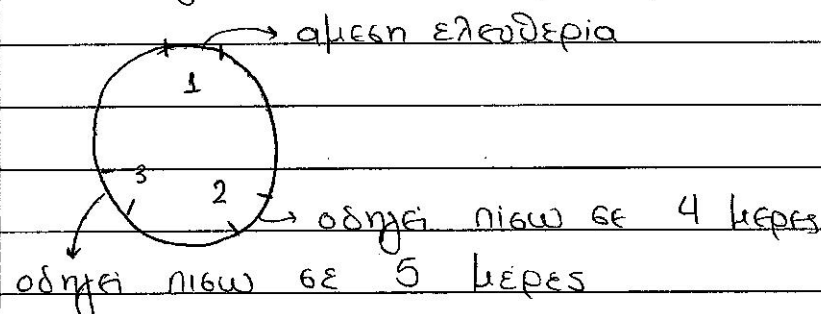 αμεση ελευθερία
1
3
2
οδηγεί πίσω σε 4 μερες
οδηγεί πισω σε 5 μέρες